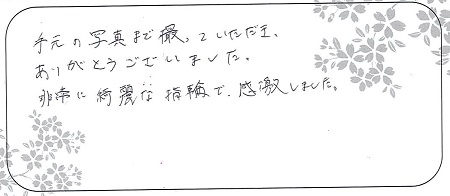 手元の写真まで撮っていただき、
ありがとうございました。
非常に綺麗な指輪で、感激しました。